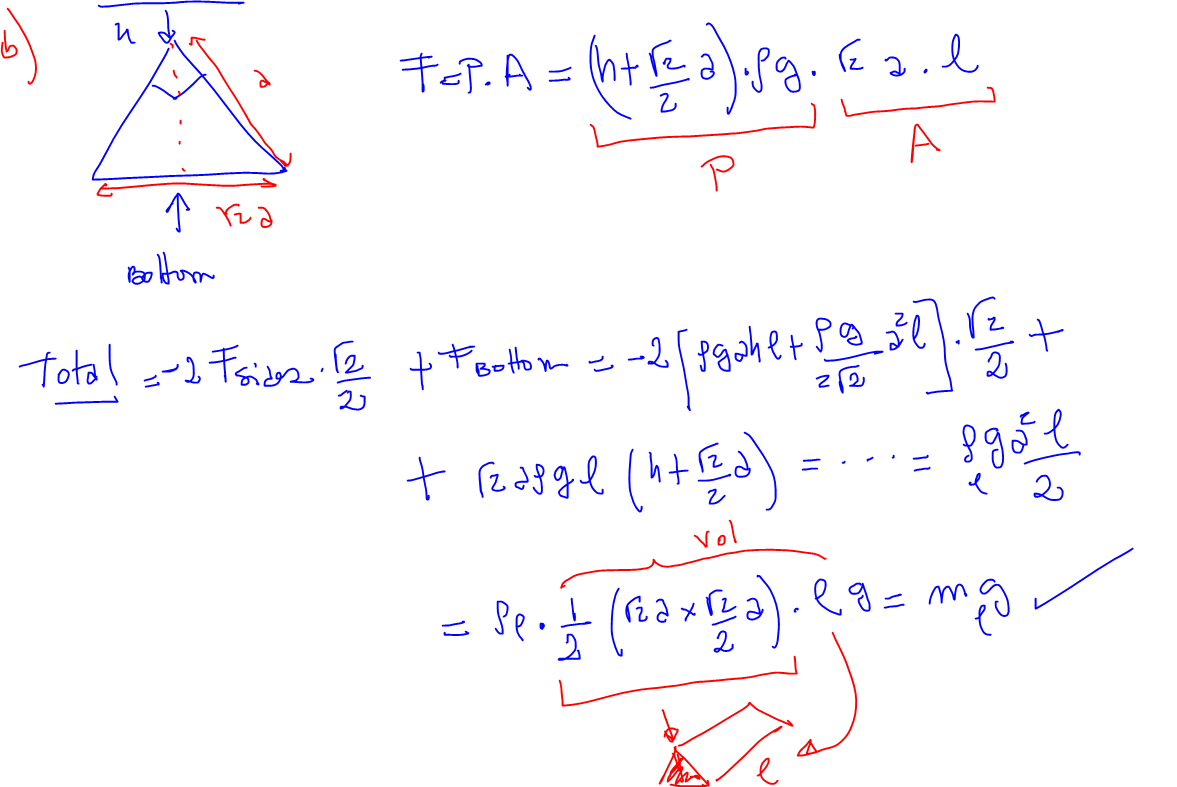 b)
h
a
√2 a
Bottom
F=P.A = (h+√2/2 a).ρg. √2 a.l
P
A
Total =-2 Fsides.√2/2 + FBottom = -2[ρgahl+ρg/2√2 a²l].√2/2 +
+ √2 aρgl (h+√2/2 a) = ... = ρl g a² l/2
Vol
= ρl.1/2 (√2a×√2/2 a).l g = ml g ✓
l